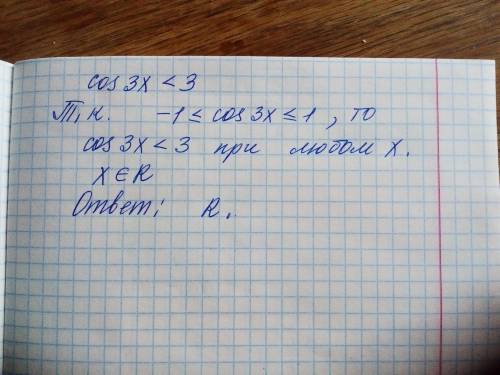 cos 3x < 3
Т.к. -1 ≤ cos 3x ≤ 1, то
cos 3x < 3 при любом x.
x ∈ R
Ответ: R.